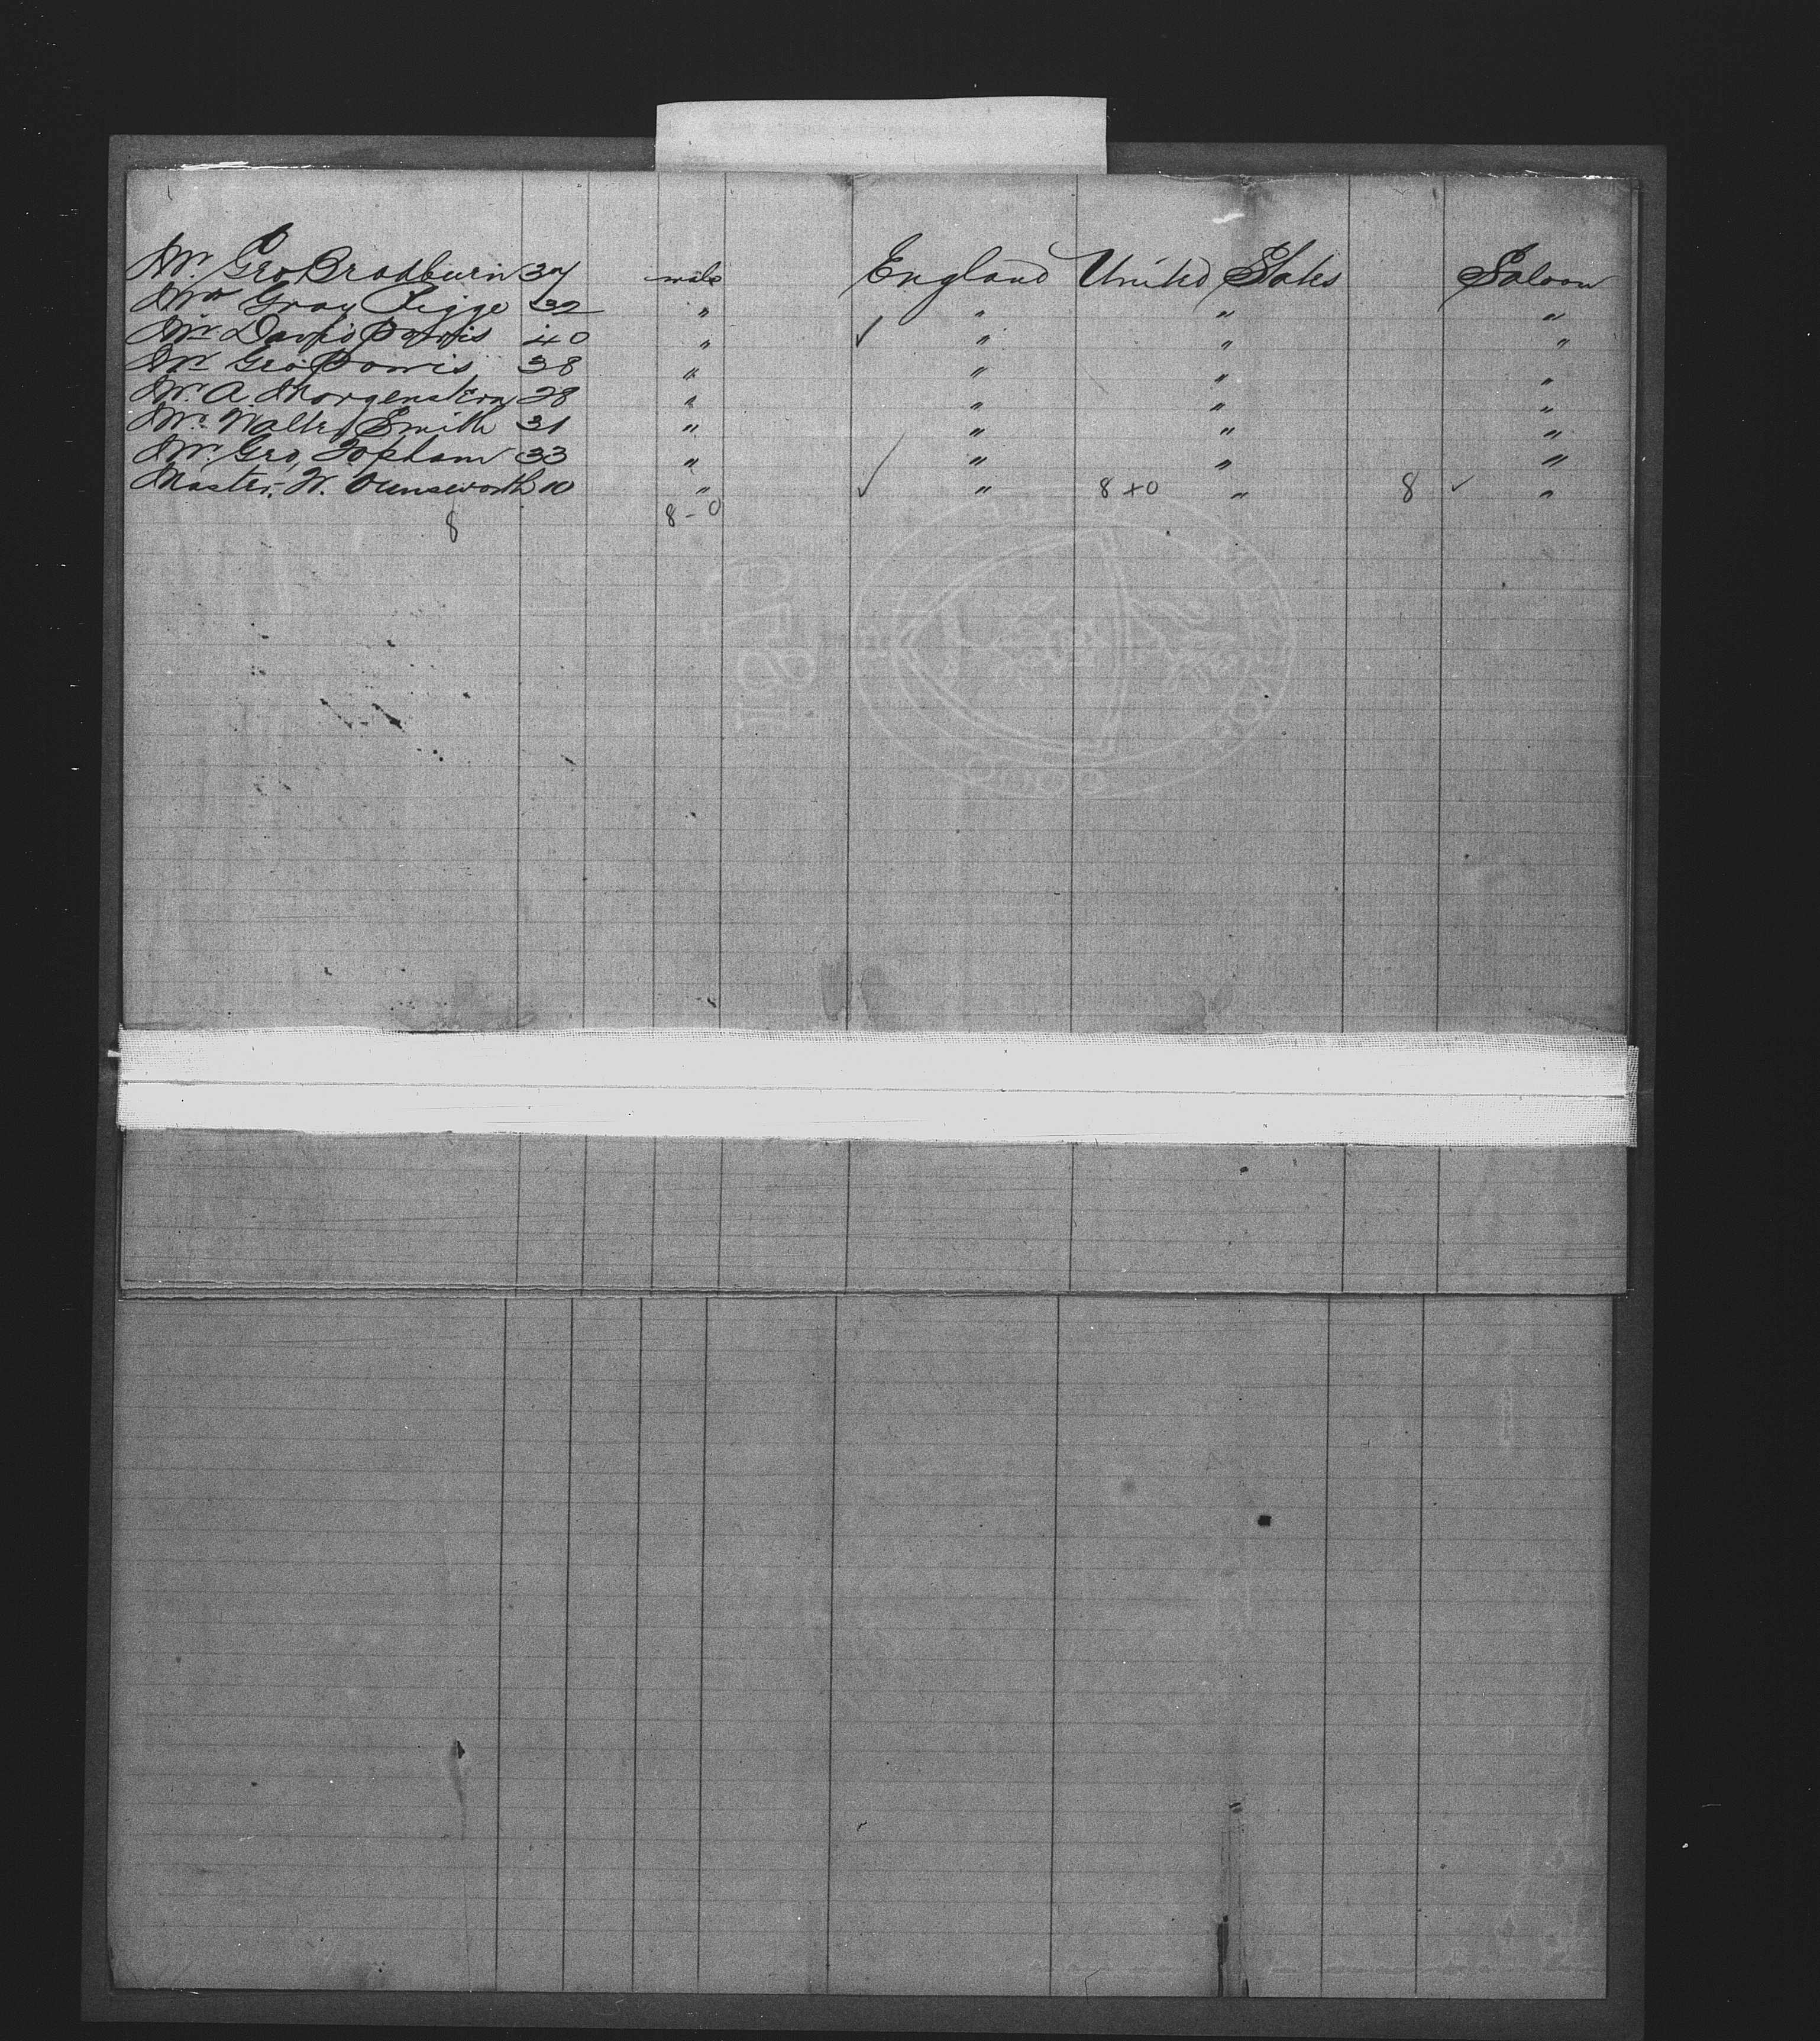 Mr. Geo Bradburn 37 male England United States Saloon
Mr Gray 32 " " " "
Mr David 40 " ✓ " " "
Mr Geo Powis 38 " " " "
Mr. A. Morgenstern 28 " " " "
Mr. Walter Smith 31 " " " "
Mr. Geo, Topham 33 " " " "
Master. W. 10 " ✓ " 8 + 0 " 8 ✓ "
8 8 - 0